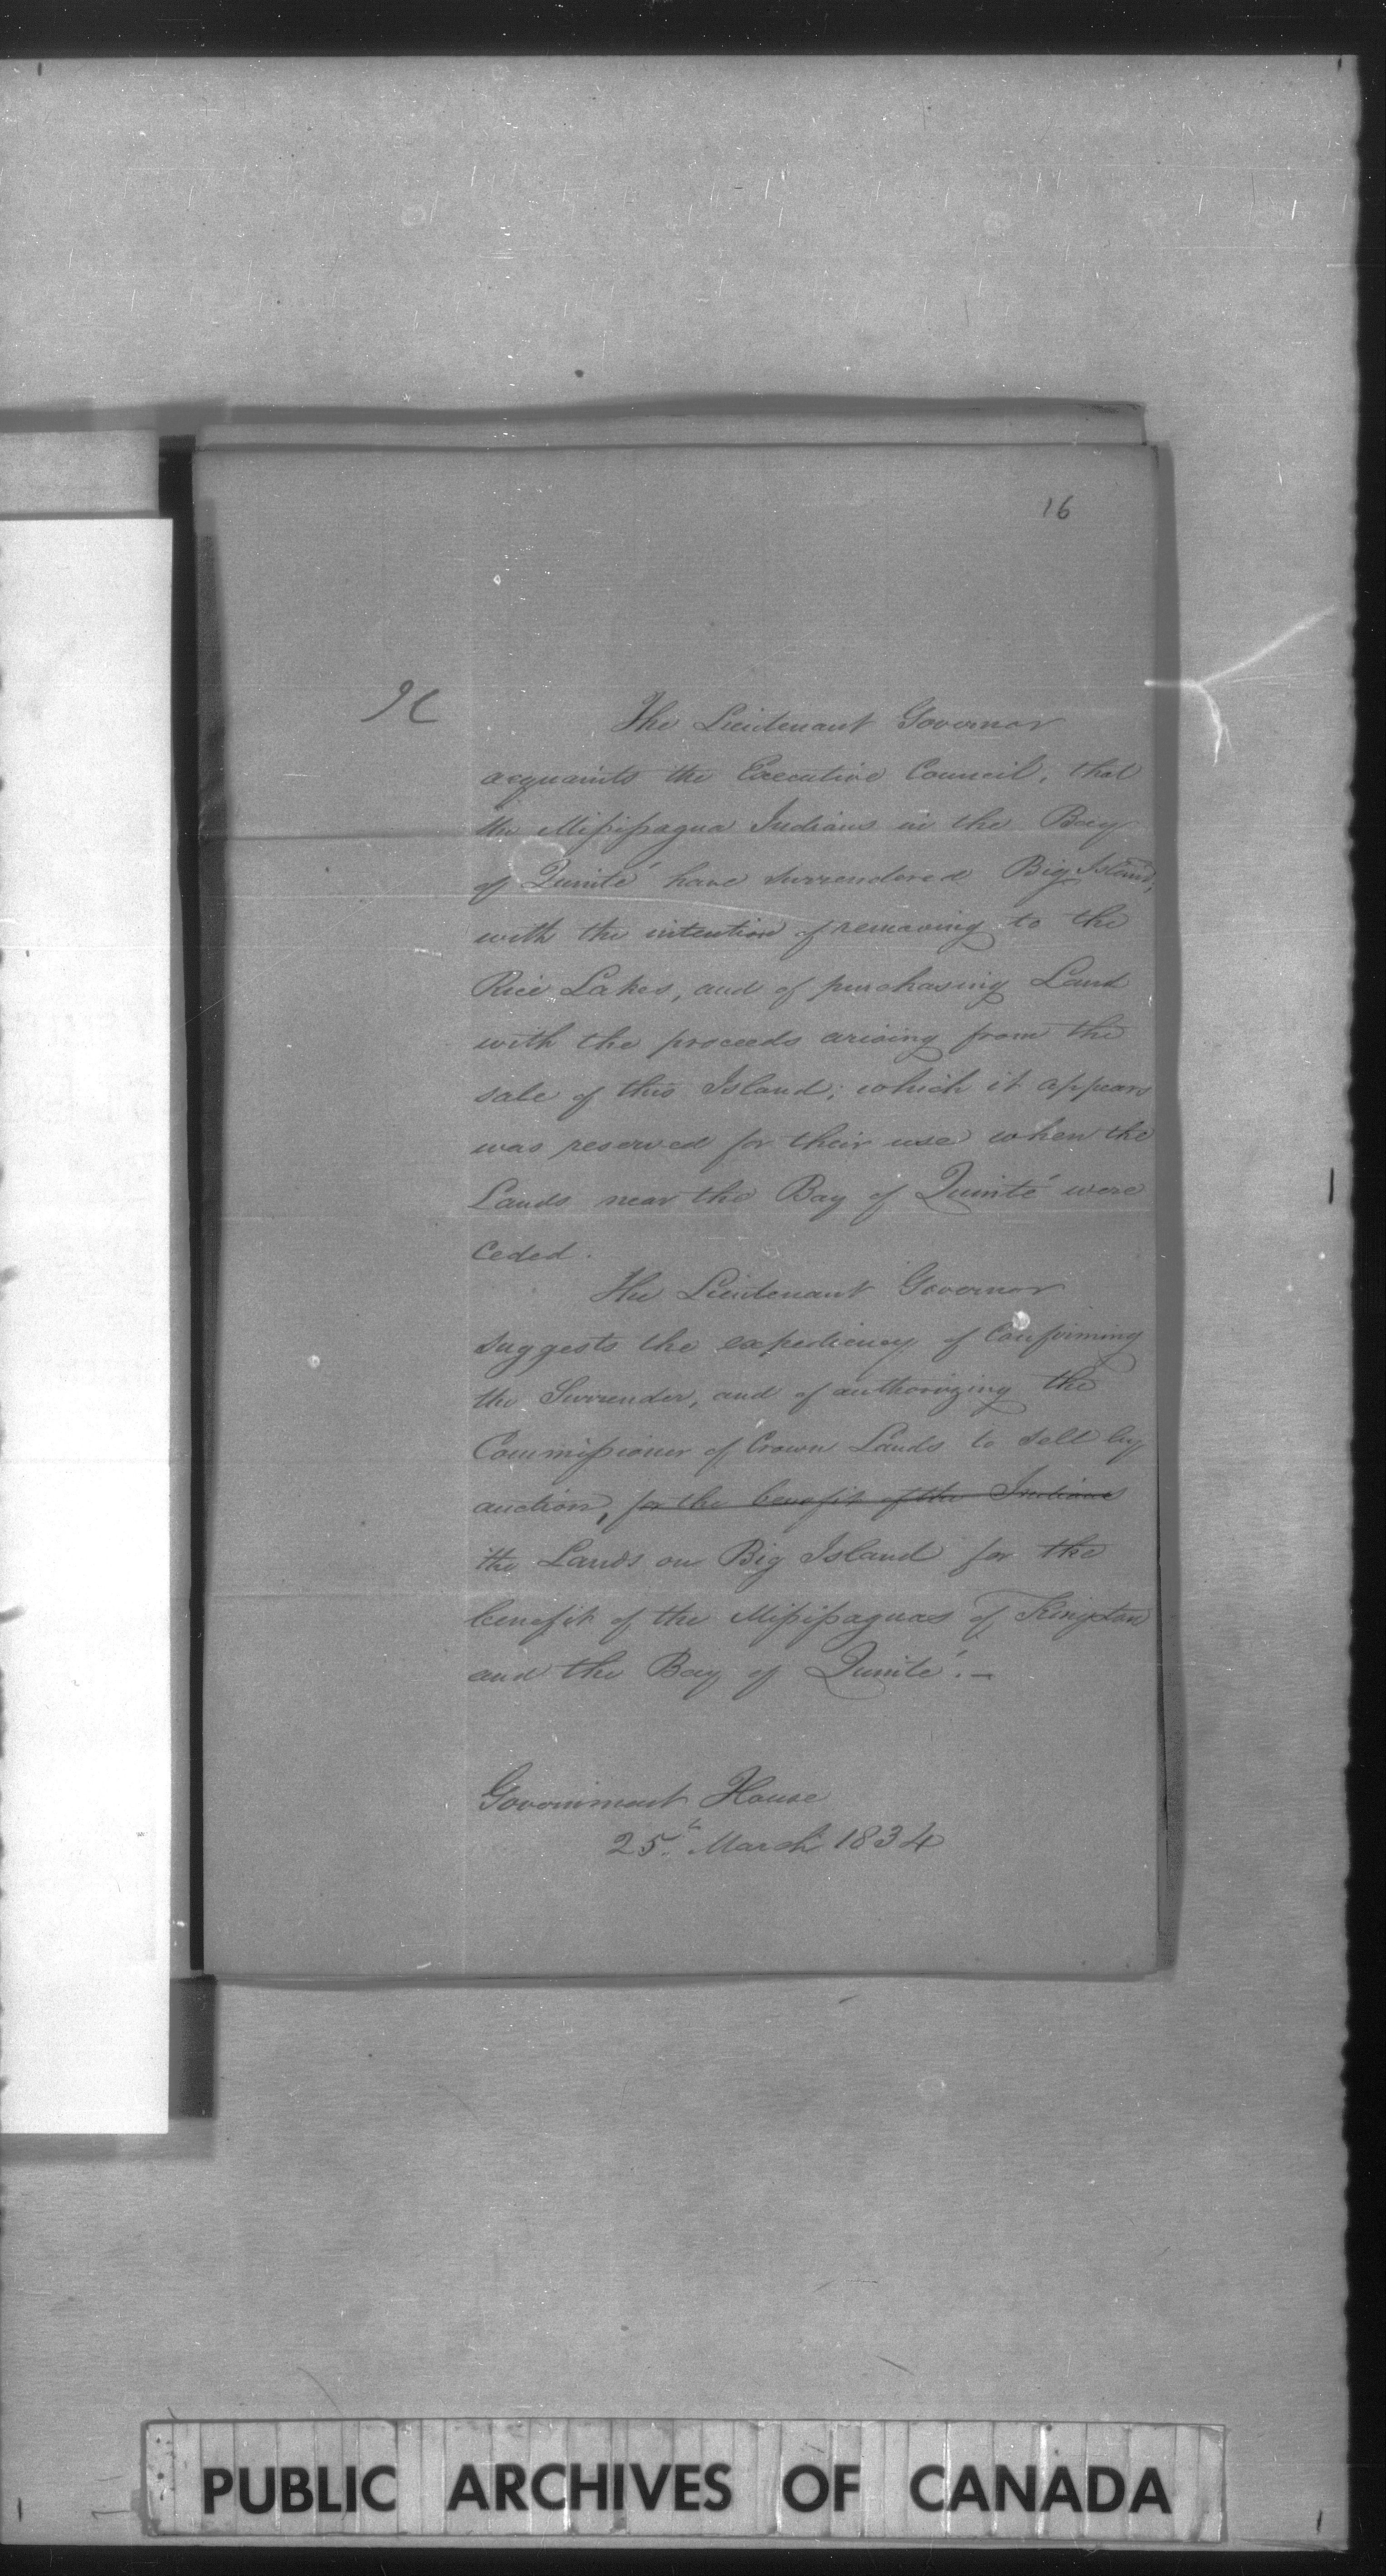 16
The Lieutenant Governor
acquaints the Executive Council, that
the Missisagua Indians in the Bay
of Quinté have surrendered Big Island,
with the intention of removing to the
Rice Lakes, and of purchasing Land
with the proceeds arising from the
sale of this Island; which it appears
was reserved for their use when the
Lands near the Bay of Quinté were
Ceded.
The Lieutenant Governor
suggests the expediency of Confirming
the Surrender, and of authorizing the
Commissioner of Crown Lands to sell by
auction, for the benefit of the Indians
the Lands on Big Island for the
benefit of the Missisaguas of Kingston
and the Bay of Quinté. —
Government House
25th March 1834
PUBLIC ARCHIVES OF CANADA